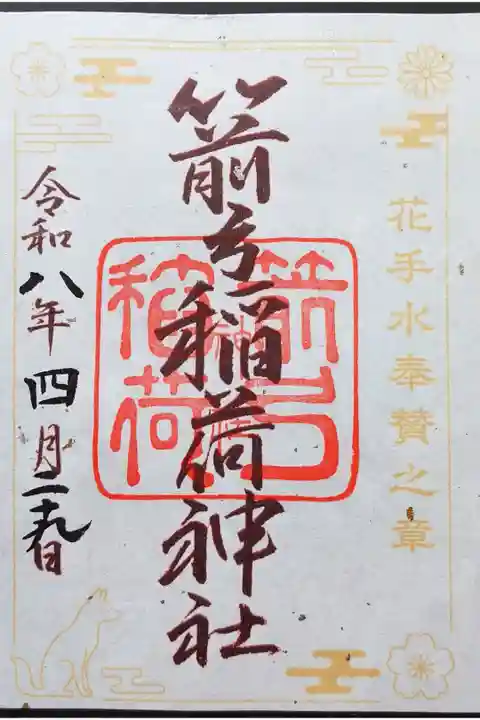 花手水奉賛之章
箭弓稲荷神社
箭弓
稲荷
神社
令和八年四月二十九日